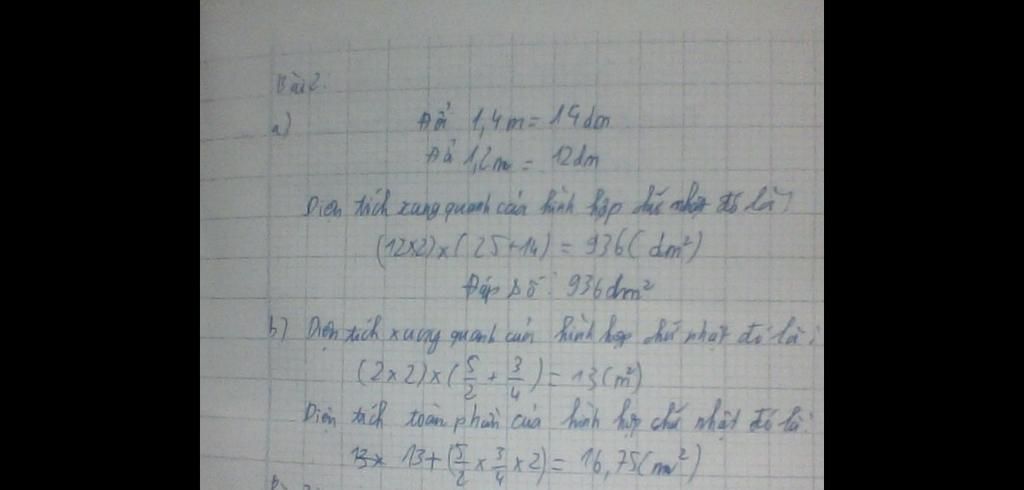 Bài 2:
a) Đổi 1,4m = 14dm
Đổi 1,2m = 12dm
Diện tích xung quanh của hình hộp chữ nhật đó là:
(12×2)×(25+14) = 936( dm²)
Đáp số: 936dm²
b) Diện tích xung quanh của hình hộp chữ nhật đó là:
(2×2)×(5/2 + 3/4) = 13(m²)
Diện tích toàn phần của hình hộp chữ nhật đó là:
13+(5/2 × 3/4 × 2) = 16,75(m²)